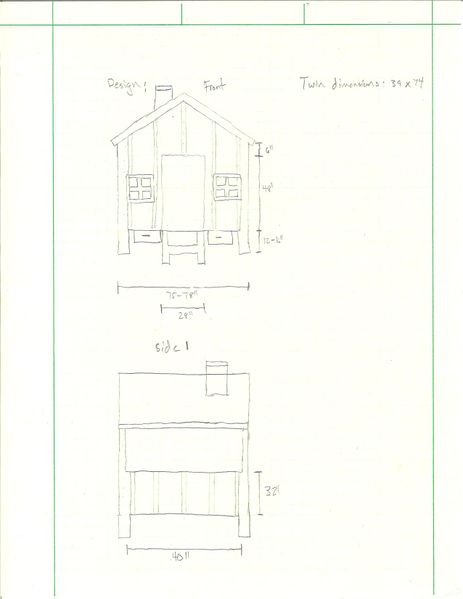 Design: Front Twin dimensions: 39 x 74
6"
48"
12-16"
75-78"
28"
side 1
32"
40"